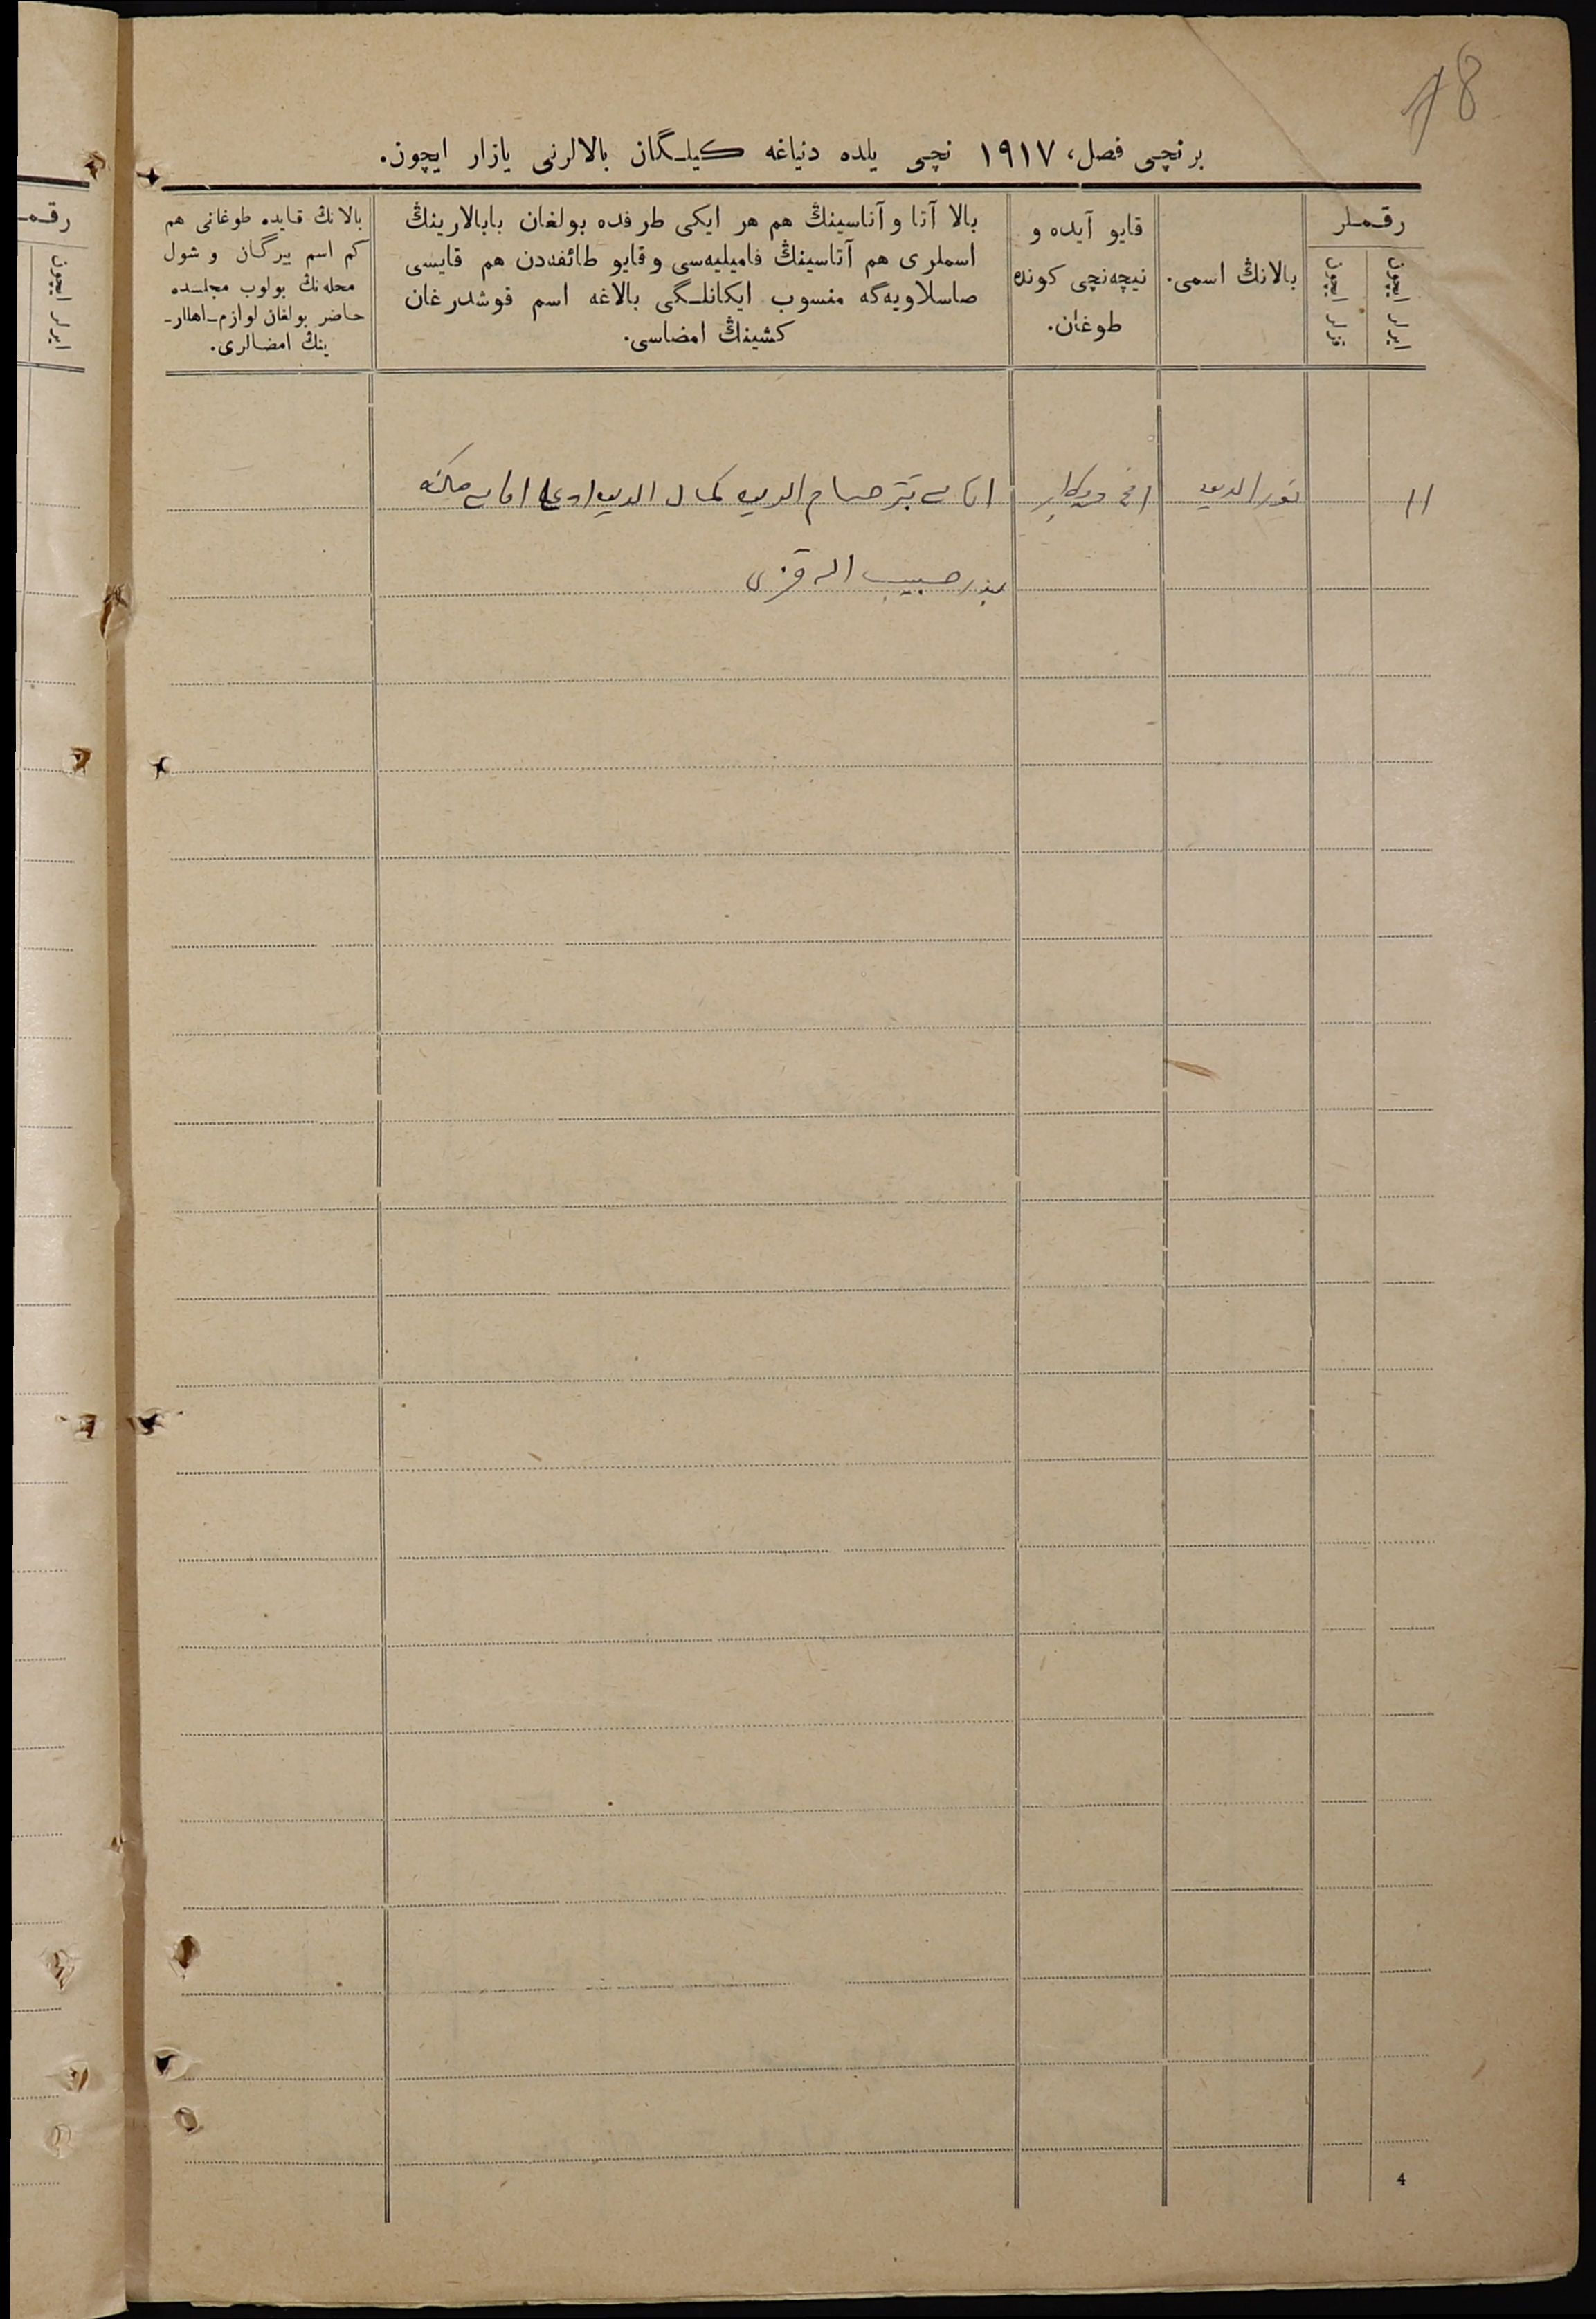 18
برنچی فصل، ١٩١٧ نچی یلده دنیاغه کیلگان بالالرنی یازار ایچون.
رقملر
ایرلر ایچون
قزلر ایچون
بالانڭ اسمی.
قایو آیده و
نیچه‌نچی کونده
طوغان.
بالا آتا و آناسینڭ هم هر ایکی طرفده بولغان بابالارینڭ
اسملری هم آتاسینڭ فامیلیه‌سی وقایو طائفه‌دن هم قایسی
صاسلاویه‌گه منسوب ایکانلگی بالاغه اسم قوشدرغان
کشینڭ امضاسی.
بالانڭ قایده طوغانی هم
کم اسم بیرگان و شول
محله‌نڭ بولوب مجلسده
حاضر بولغان لوازم-اهللر-
ینڭ امضالری.
11
نورالدین
حسام الدین کمال الدین اوغلی
حبیب الله قزی
4
رقم
ایرلر ایچون